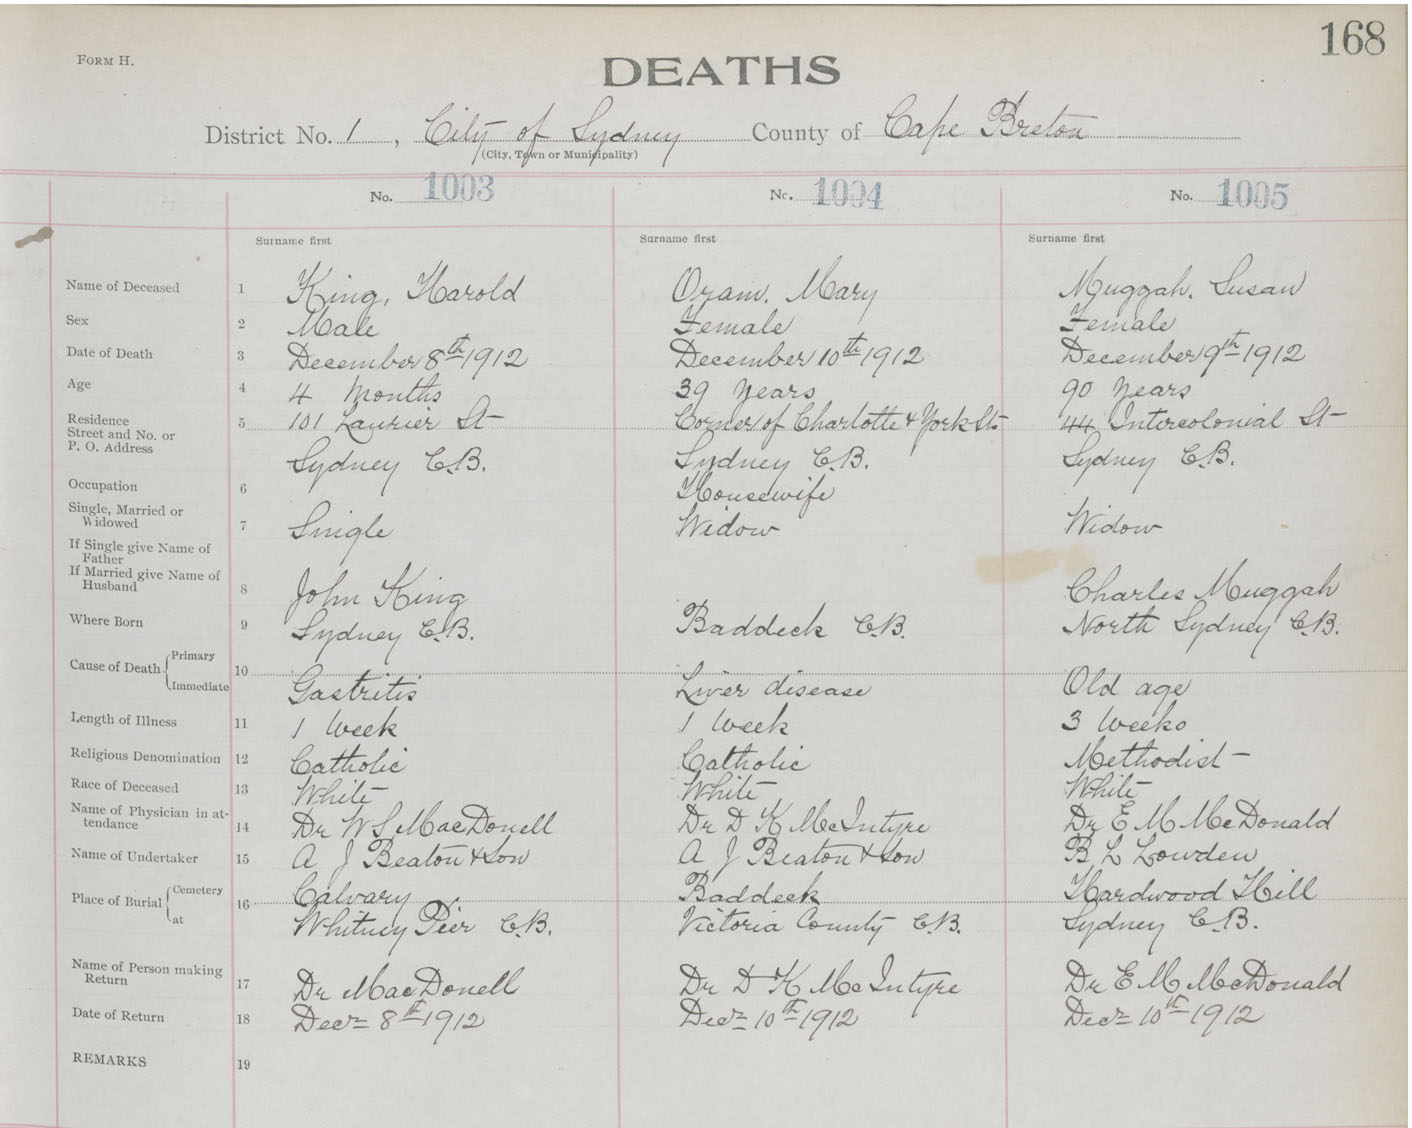 168
FORM H.
DEATHS
District No. 1, City of Sydney County of Cape Breton
(City, Town or Municipality)
No. 1003 No. 1004 No. 1005
Surname first Surname first Surname first
Name of Deceased 1 King, Harold Oram, Mary Muggah, Susan
Sex 2 Male Female Female
Date of Death 3 December 8th 1912 December 10th 1912 December 9th 1912
Age 4 4 Months 39 Years 90 Years
Residence
Street and No. or 5 101 Laurier St Corner of Charlotte & York Sts 44 Intercolonial St
P. O. Address Sydney C.B. Sydney C.B. Sydney C.B.
Occupation 6 Housewife
Single, Married or
Widowed 7 Single Widow Widow
If Single give Name of
Father
If Married give Name of
Husband 8 John King Charles Muggah
Where Born 9 Sydney C.B. Baddeck C.B. North Sydney C.B.
Cause of Death { Primary 10
Immediate Gastritis Liver disease Old age
Length of Illness 11 1 Week 1 Week 3 Weeks
Religious Denomination 12 Catholic Catholic Methodist
Race of Deceased 13 White White White
Name of Physician in at-
tendance 14 Dr W S MacDonell Dr D K McIntyre Dr E M McDonald
Name of Undertaker 15 A J Beaton & Son A J Beaton & Son B L Lowden
Place of Burial { Cemetery 16 Calvary Baddeck Hardwood Hill
at Whitney Pier C.B. Victoria County C.B. Sydney C.B.
Name of Person making
Return 17 Dr MacDonell Dr D K McIntyre Dr E M McDonald
Date of Return 18 Decr 8th 1912 Decr 10th 1912 Decr 10th 1912
REMARKS 19